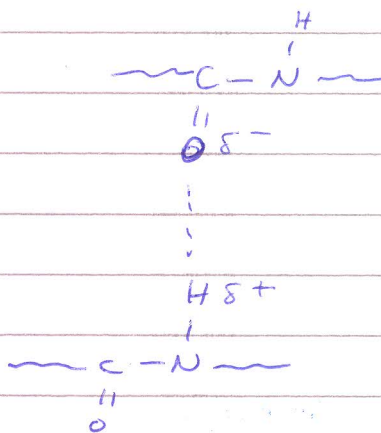 H
C – N
O δ –
H δ +
C – N
O